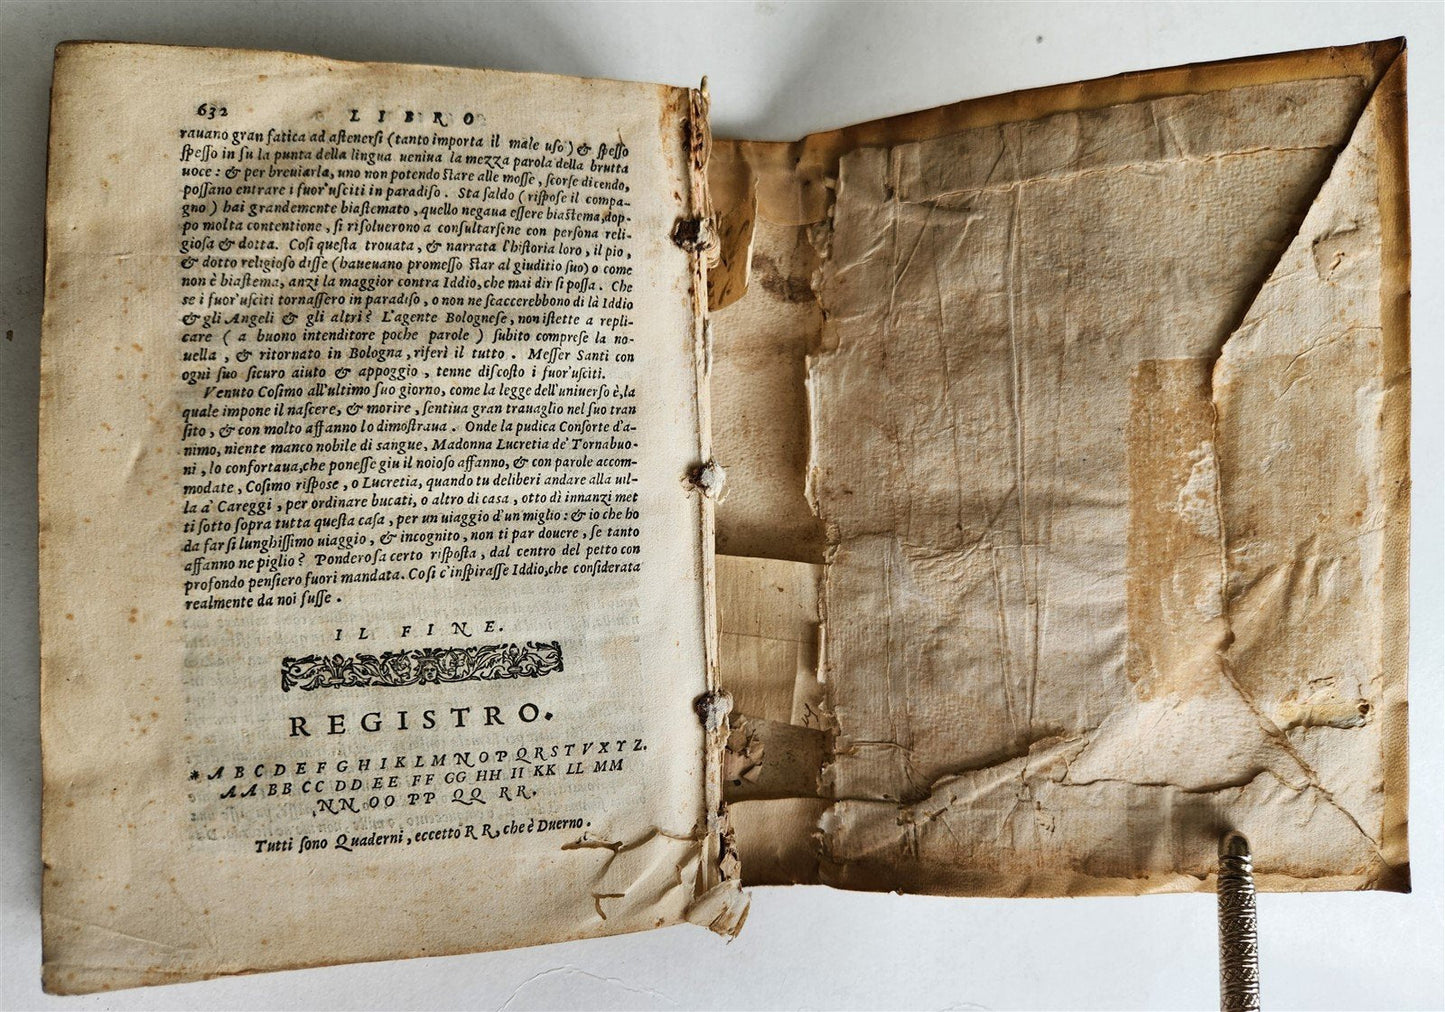 632
LIBRO
rauano gran fatica ad astenersi (tanto importa il male uso) & spesso
spesso in su la punta della lingua ueniua la mezza parola della brutta
uoce: & per breuiarla, uno non potendo stare alle mosse, scorse dicendo,
possano entrare i fuor'usciti in paradiso. Sta saldo (rispose il compa-
gno) hai grandemente biastemato, quello negaua essere biastema, dop-
po molta contentione, si risoluerono a consultarsene con persona reli-
giosa & dotta. Cosi questa trouata, & narrata l'historia loro, il pio,
& dotto religioso disse (haueuano promesso star al giuditio suo) o come
non è biastema, anzi la maggior contra Iddio, che mai dir si possa. Che
se i fuor'usciti tornassero in paradiso, o non ne scaccerebbono di là Iddio
& gli Angeli & gli altri? L'agente Bolognese, non istette a repli-
care (a buono intenditore poche parole) subito comprese la no-
uella, & ritornato in Bologna, riferì il tutto. Messer Santi con
ogni suo sicuro aiuto & appoggio, tenne discosto i fuor'usciti.
Venuto Cosimo all'ultimo suo giorno, come la legge dell'uniuerso è, la
quale impone il nascere, & morire, sentiua gran trauaglio nel suo tran
sito, & con molto affanno lo dimostraua. Onde la pudica Consorte d'a-
nimo, niente manco nobile di sangue, Madonna Lucretia de' Tornabuo-
ni, lo confortaua, che ponesse giu il noioso affanno, & con parole accom-
modate, Cosimo rispose, o Lucretia, quando tu deliberi andare alla uil-
la à Careggi, per ordinare bucati, o altro di casa, otto dì innanzi met
ti sotto sopra tutta questa casa, per un uiaggio d'un miglio: & io che ho
da far si lunghissimo uiaggio, & incognito, non ti par douere, se tanto
affanno ne piglio? Ponderosa certo risposta, dal centro del petto con
profondo pensiero fuori mandata. Cosi c'inspirasse Iddio, che considerata
realmente da noi fusse.
IL FINE.
REGISTRO.
* A B C D E F G H I K L M N O P Q R S T V X Y Z.
AA BB CC DD EE FF GG HH II KK LL MM
NN OO PP QQ RR.
Tutti sono Quaderni, eccetto RR, che è Duerno.